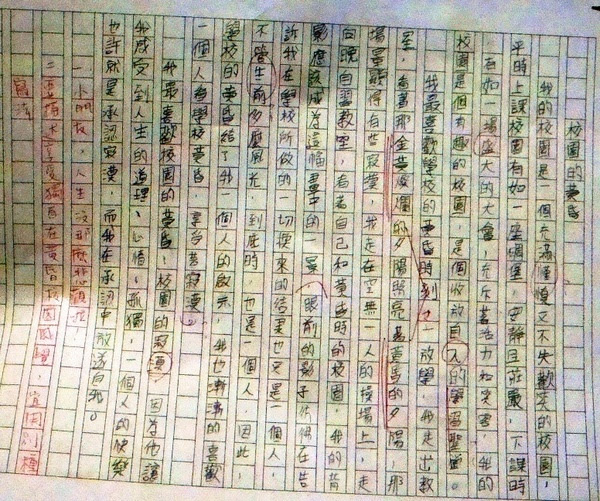 校園的黃昏
我的校園是一個充滿懂憬又不失歡笑的校園,
平時上課校園有如一座碉堡,安靜且莊嚴,下課時
有如一場盛大的大會,充斥著活力和笑容,我的
校園是個有趣的校園,是個收放自入的學習聖堂。
我最喜歡學校的黃昏時刻了,一放學,我走出教
室,看著那金黃燦爛的夕陽照亮著萬馬的夕陽,那
場景顯得有些寂寞,我走在空無一人的操場上,走
向晚自習教室,看著自己和黃昏時的校園,我的背
影應該成為這幅畫中的一景,眼前的影子彷彿在告
訴我在學校所做的一切換來的結果也只是一個人,
不管生前多麼風光,到底時,也是一個人,因此,
學校的黃昏給了我一個人的啟示,我也漸漸的喜歡
一個人看學校黃昏,享受著寂寞。
我最喜歡校園的黃昏,校園的寂寞,因為他讓
我感受到人生的道理、心情、孤獨,一個人的快樂
也許就是承認寂寞,而我在承認中放逐自我。
一、小朋友,人生沒那麼悲觀啦!